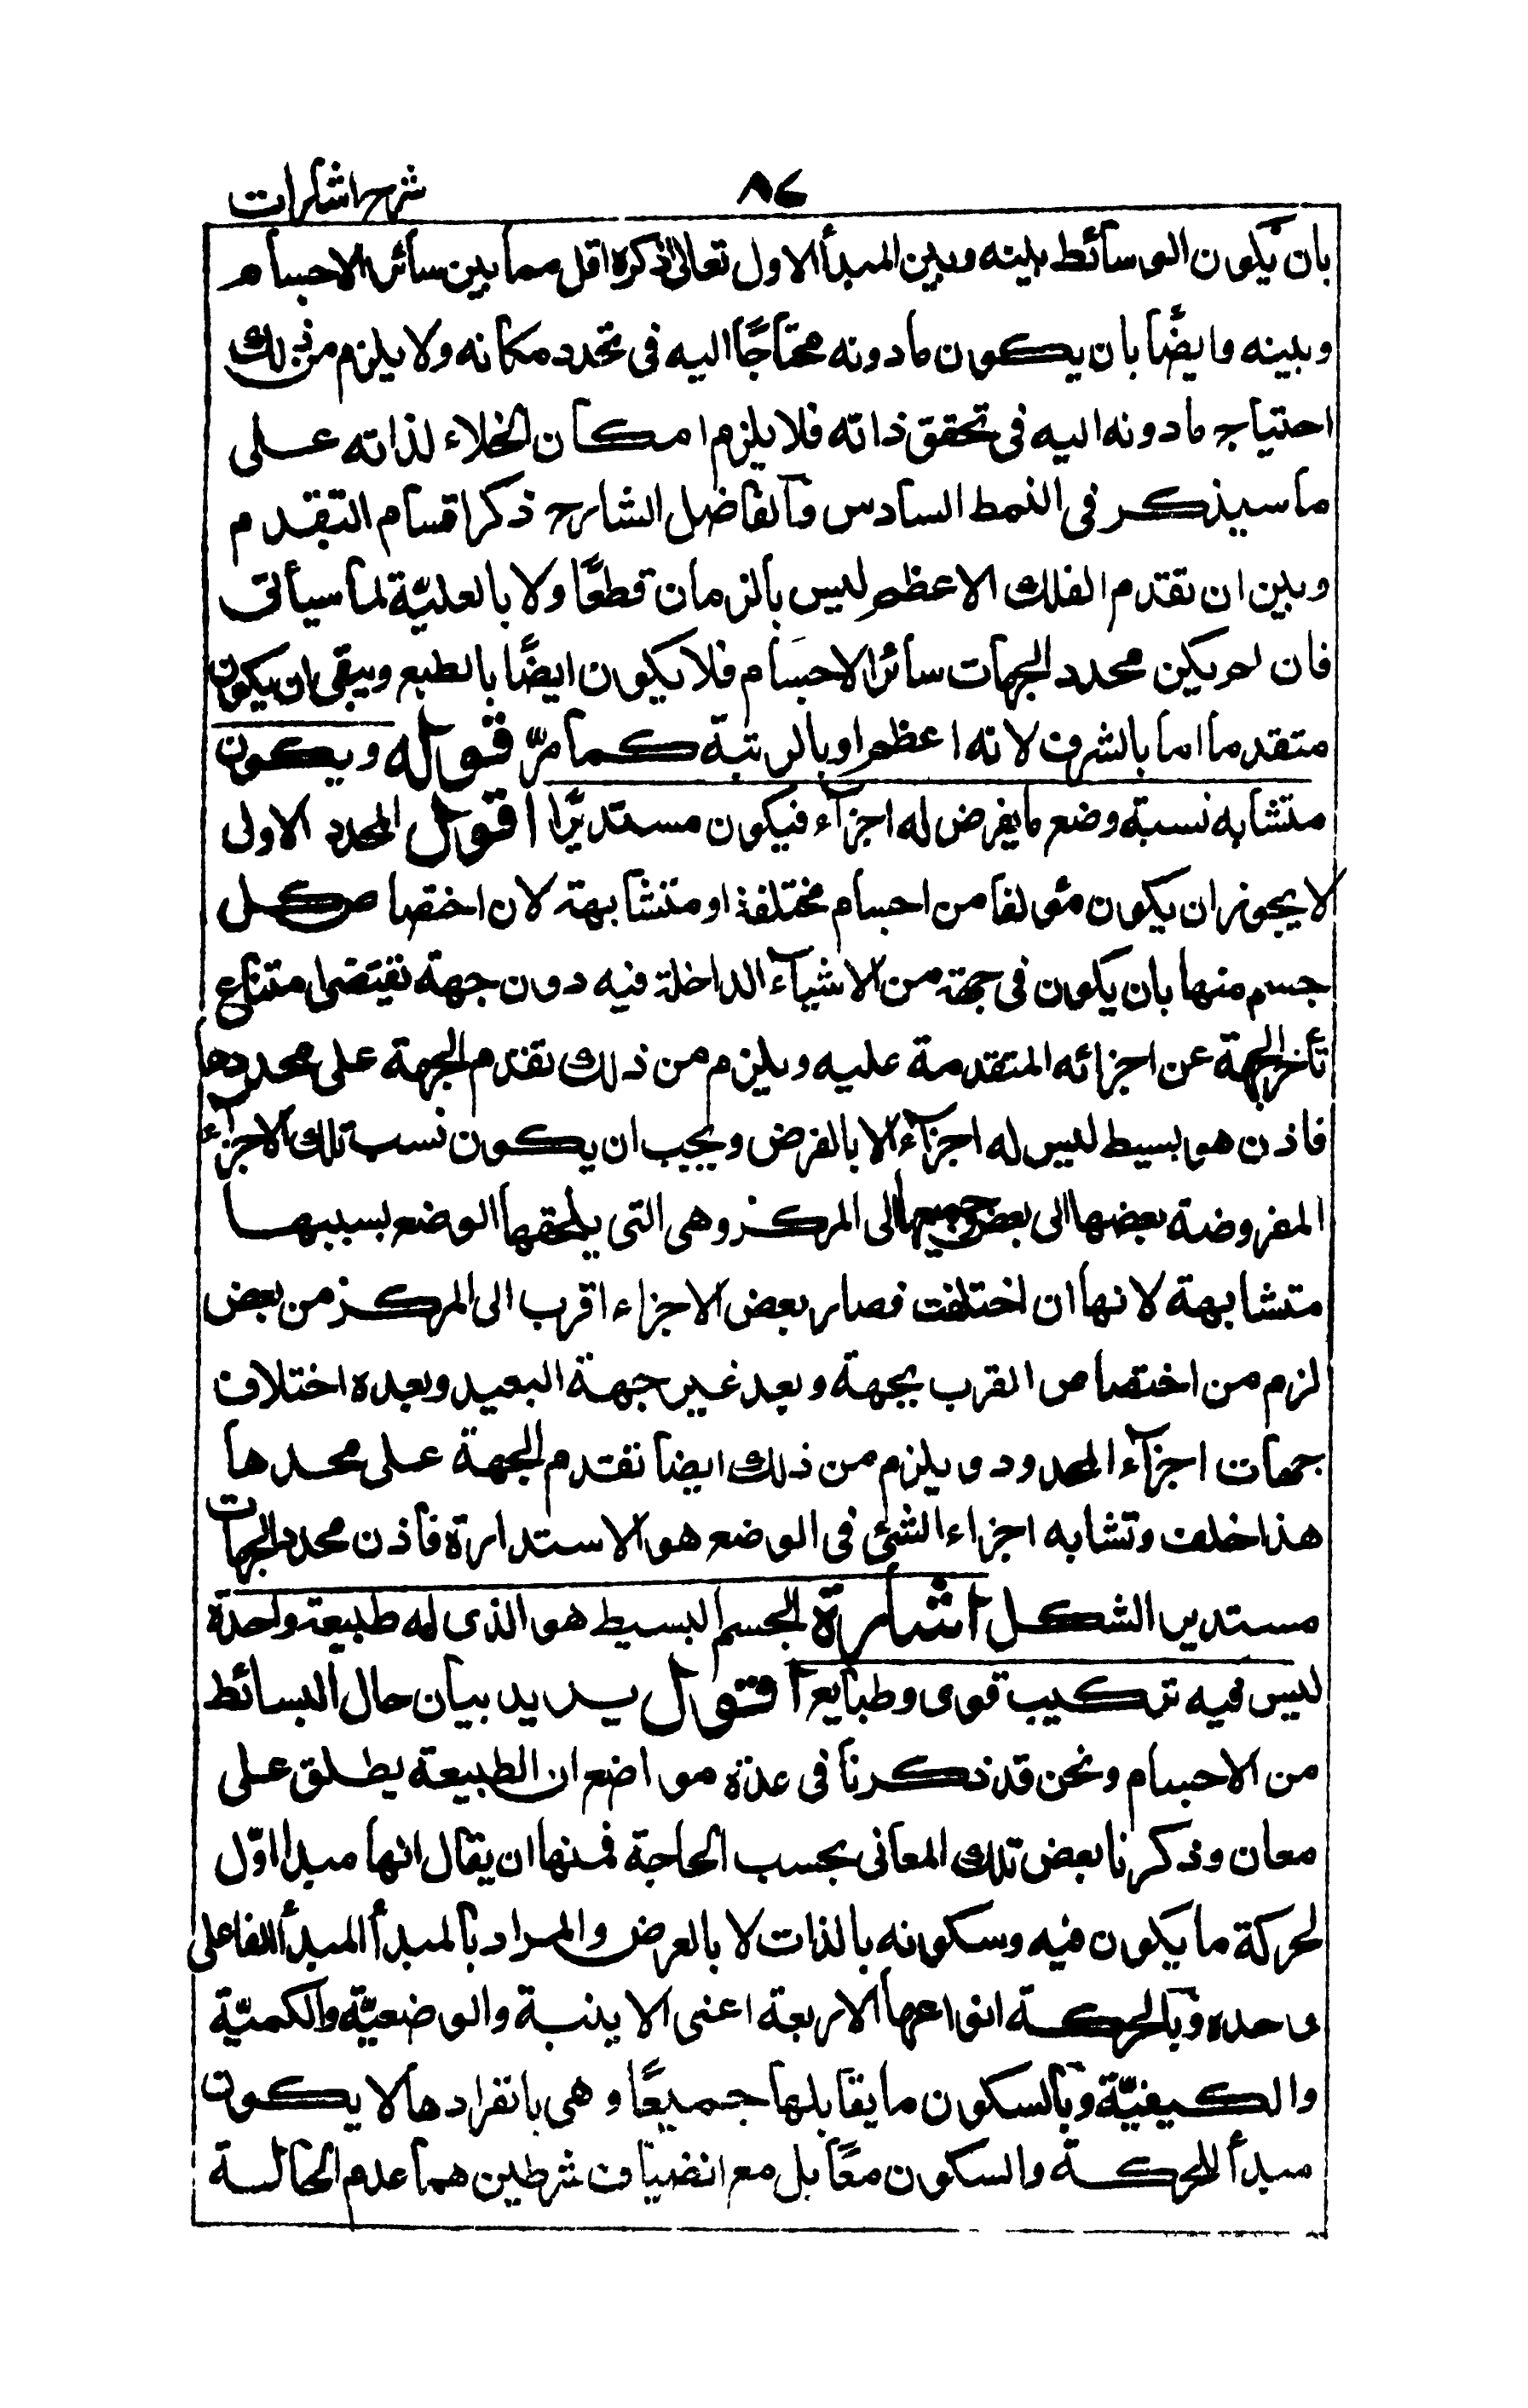 شرح اشارات
٨٤
بان يكون الوسائط بينه وبين المبدأ الاول تعالى ذكره اقل مما بين سائر الاجسام
وبينه وايضًا بان يكون مادونه محتاجًا اليه فى تحدد مكانه ولا يلزم من ذلك
احتياج مادونه اليه فى تحقق ذاته فلا يلزم امكان الخلاء لذاته على
ما سيذكر فى النمط السادس والفاضل الشارح ذكر اقسام التقدم
وبين ان تقدم الفلك الاعظم ليس بالزمان قطعًا ولا بالعليّة لما سيأتى
فان لم يكن محدد الجهات سائر الاجسام فلا يكون ايضًا بالطبع ويبقى بان يكون
متقدما اما بالشرف لانه اعظم او بالرتبة كما مرّ قوله ويكون
متشابه نسبة وضع ما يفرض له اجزاء فيكون مستديرًا اقول المحدد الاول
لا يجوز ان يكون مؤلفا من اجسام مختلفة او متشابهة لان اختصاص كل
جسم منها بان يكون فى جهة من الاشياء الداخلة فيه دون جهة تقتضى امتناع
تأخر الجهة عن اجزائه المتقدمة عليه ويلزم من ذلك تقدم الجهة على محددها
فاذن هو بسيط ليس له اجزاء الا بالفرض ويجب ان يكون نسب تلك الاجزاء
المفروضة بعضها الى بعض وجميعها الى المركز وهى التى يلحقها الوضع بسببها
متشابهة لانها ان اختلفت فصار بعض الاجزاء اقرب الى المركز من بعض
لزم من اختصاص القرب بجهة وبعد غير جهة البعيد وبعده اختلاف
جهات اجزاء المحدود ويلزم من ذلك ايضا تقدم الجهة على محددها
هذا خلف وتشابه اجزاء الشئ فى الوضع هو الاستدارة فاذن محدد الجهات
مستدير الشكل اشارة الجسم البسيط هو الذى له طبيعة واحدة
ليس فيه تركيب قوى وطبايع اقول يريد بيان حال البسائط
من الاجسام ونحن قد ذكرنا فى عدة مواضع ان الطبيعة يطلق على
معان وذكرنا بعض تلك المعانى بحسب الحاجة فمنها ان يقال انها مبدا اوّل
لحركة ما يكون فيه وسكونه بالذات لا بالعرض والمراد بالمبدأ المبدأ الفاعلى
وحده وبالحركة انواعها الاربعة اعنى الاينية والوضعيّة والكميّة
والكيفيّة وبالسكون ما يقابلها جميعًا وهى بانفرادها لا يكون
مبدأ للحركة والسكون معًا بل مع انضياف شرطين هما عدم الحالة